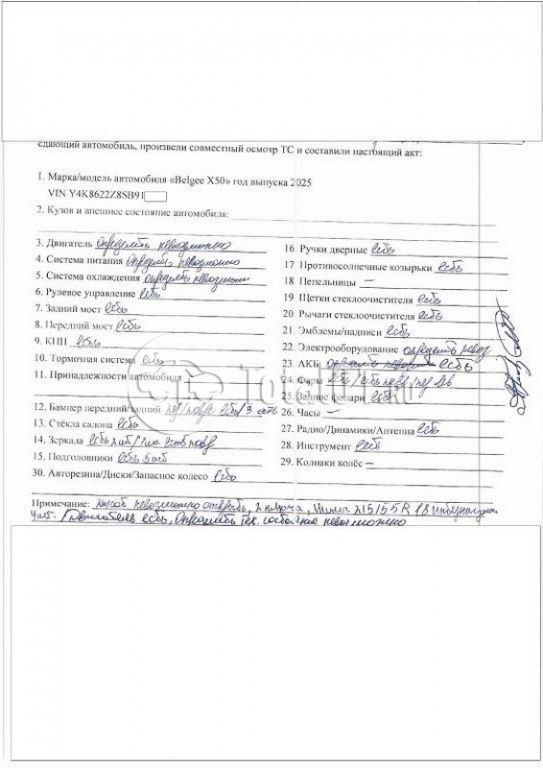 сдающий автомобиль, произвели совместный осмотр ТС и составили настоящий акт:
1. Марка/модель автомобиля «Belgee X50» год выпуска 2025
VIN Y4K8622Z8SB91
2. Кузов и внешнее состояние автомобиля:
3. Двигатель определить невозможно
4. Система питания определить невозможно
5. Система охлаждения определить невозможн
6. Рулевое управление есть
7. Задний мост есть
8. Передний мост есть
9. КПП есть
10. Тормозная система есть
11. Принадлежности автомобиля
12. Бампер передний/задний
13. Стёкла салона есть
14. Зеркала
15. Подголовники есть 5 шт
16 Ручки дверные есть
17 Противосолнечные козырьки есть
18 Пепельницы –
19 Щетки стеклоочистителя есть
20 Рычаги стеклоочистителя есть
21 Эмблемы/надписи есть
22 Электрооборудование определить невоз
23 АКБ есть
24 Фары
25 Задние фонари есть
26 Часы –
27. Радио/Динамики/Антенна есть
28. Инструмент есть
29. Колпаки колёс –
30. Авторезина/Диски/Запасное колесо есть
Примечание: капот невозможно открыть, 2 ключа, шины 215/55 R 18
4 шт. Двигатель есть, определить тех. невозможно
Total01.RU